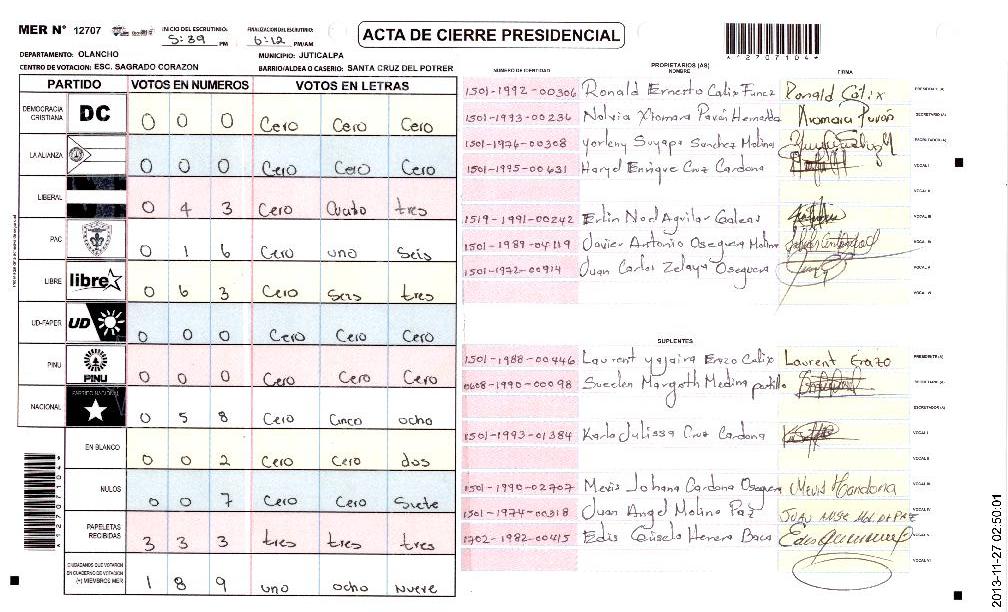 MER N° 12707
INICIO DEL ESCRUTINIO: 5:39 PM
FINALIZACION DEL ESCRUTINIO: 6:12 PM/AM
ACTA DE CIERRE PRESIDENCIAL
*12707104*
DEPARTAMENTO: OLANCHO
MUNICIPIO: JUTICALPA
CENTRO DE VOTACION: ESC. SAGRADO CORAZON
BARRIO/ALDEA O CASERIO: SANTA CRUZ DEL POTRER
PARTIDO VOTOS EN NUMEROS VOTOS EN LETRAS
DEMOCRACIA CRISTIANA DC 0 0 0 Cero Cero Cero
LA ALIANZA 0 0 0 Cero Cero Cero
LIBERAL 0 4 3 Cero Cuatro tres
PAC 0 1 6 Cero uno Seis
LIBRE libre 0 6 3 Cero seis tres
UD-FAPER UD 0 0 0 Cero Cero Cero
PINU PINU 0 0 0 Cero Cero Cero
NACIONAL PARTIDO NACIONAL 0 5 8 Cero Cinco ocho
EN BLANCO 0 0 2 Cero Cero dos
NULOS 0 0 7 Cero Cero Siete
PAPELETAS RECIBIDAS 3 3 3 tres tres tres
CIUDADANOS QUE VOTARON EN CUADERNO DE VOTACION (+) MIEMBROS MER 1 8 9 uno ocho Nueve
*12707104*
PROPIETARIOS (AS)
NUMERO DE IDENTIDAD NOMBRE FIRMA
1501-1992-00306 Ronald Ernesto Calix Funez Ronald Calix PRESIDENTE (A)
1501-1993-00236 Nolvia Xiomara Pavón Xiomara Pavón SECRETARIO (A)
1501-1976-00308 Yorleny Suyapa Sanchez Molina ESCRUTADOR (A)
1501-1995-00631 Enrique Cruz Cardona VOCAL I
VOCAL II
1519-1991-00242 Erlin Noel Aguilar VOCAL III
1501-1989-04119 Javier Antonio Oseguera Molina VOCAL IV
1501-1972-00914 Juan Carlos Zelaya Oseguera VOCAL V
VOCAL VI
SUPLENTES
1501-1988-00446 Laurent yajaira Erazo Calix Laurent Erazo PRESIDENTE (A)
0608-1990-00098 Sueelen Margoth Medina portillo SECRETARIO (A)
ESCRUTADOR (A)
1501-1993-01384 Karla Julissa Cruz Cardona VOCAL I
VOCAL II
1501-1990-02707 Mevis Johana Cardona Oseguera Mevis Cardona VOCAL III
1501-1974-00318 Juan Angel Molina Paz VOCAL IV
1702-1982-00415 Edis Herrera VOCAL V
VOCAL VI
2013-11-27 02:50:01